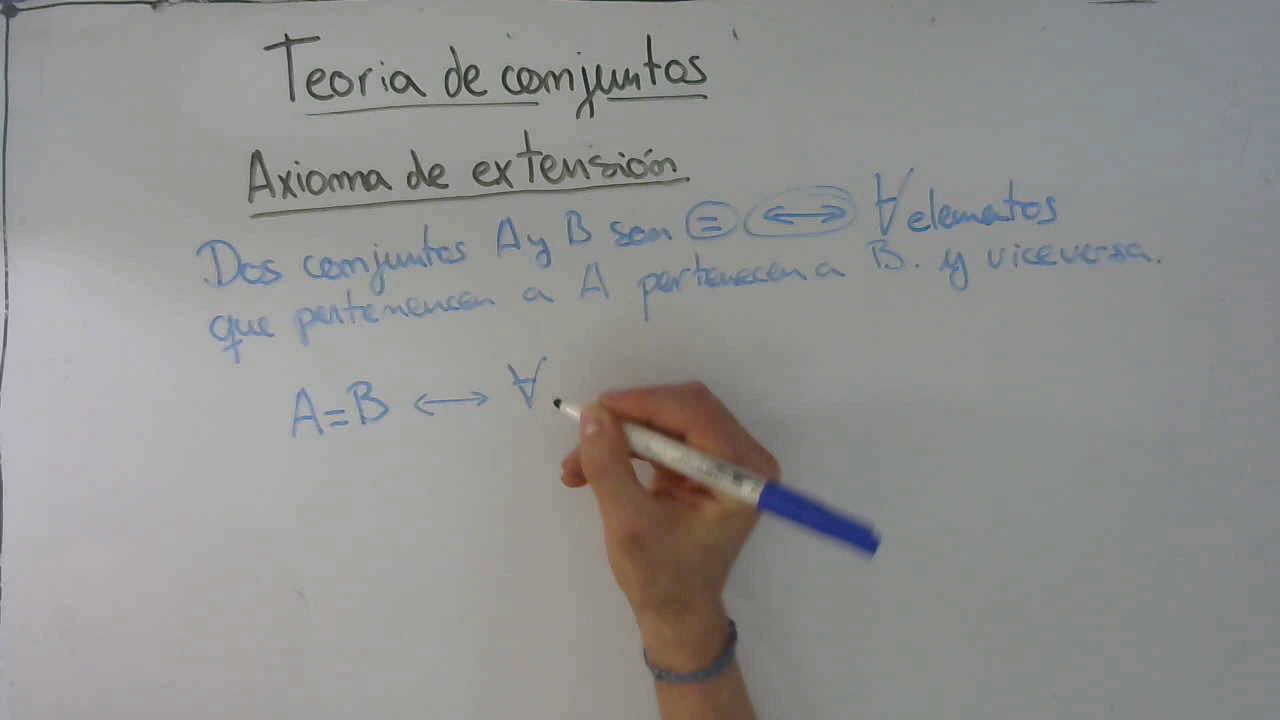 Teoria de conjuntos
Axioma de extensión
Dos conjuntos A y B son = ↔ ∀ elematos
que pertenencen a A pertenecen a B. y viceversa.
A=B ↔ ∀